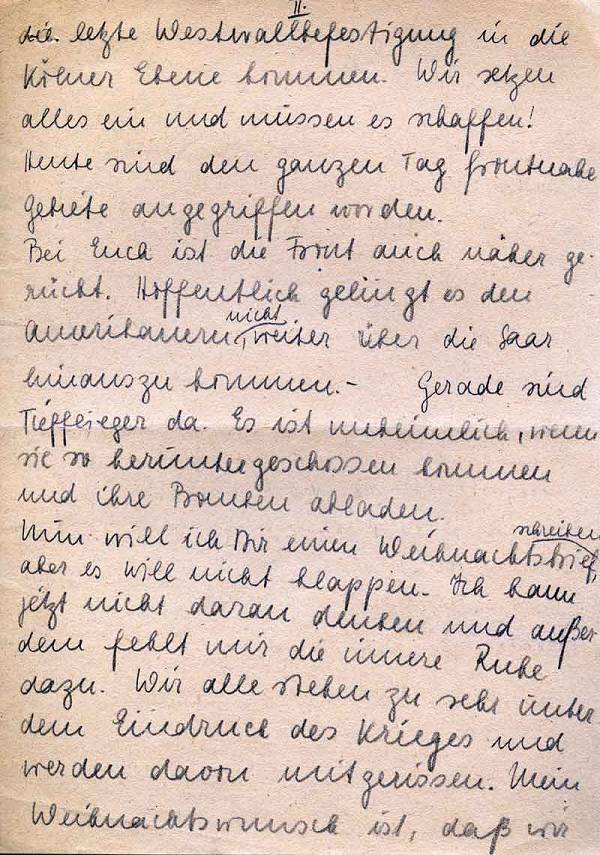 II.
die letzte Westwallbefestigung in die
Kölner Ebene kommen. Wir setzen
alles ein und müssen es schaffen!
Heute sind den ganzen Tag frontnahe
Gebiete angegriffen worden.
Bei Euch ist die Front auch näher ge-
rückt. Hoffentlich gelingt es den
Amerikanern nicht weiter über die Saar
hinauszukommen.- Gerade sind
Tiefflieger da. Es ist unheimlich, wenn
sie so heruntergeschossen kommen
und ihre Bomben abladen.
Nun will ich Dir einen Weihnachtsbrief schreiben,
aber es will nicht klappen. Ich kann
jetzt nicht daran denken und außer-
dem fehlt mir die innere Ruhe
dazu. Wir alle stehen zu sehr unter
dem Eindruck des Krieges und
werden davon mitgerissen. Mein
Weihnachtswunsch ist, daß wir